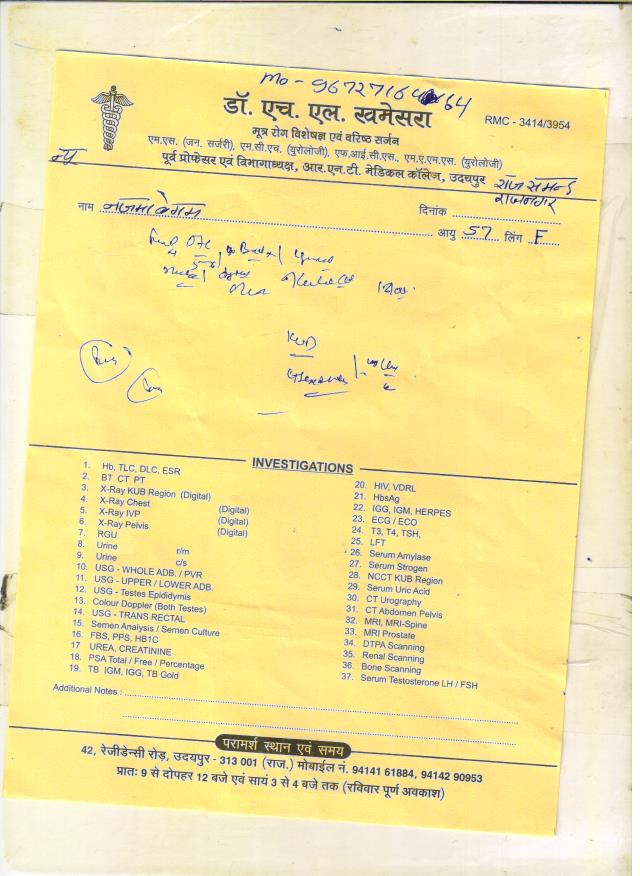 Mo - 9672716
डॉ. एच. एल. खमेसरा
RMC - 3414/3954
मूत्र रोग विशेषज्ञ एवं वरिष्ठ सर्जन
एम.एस. (जन. सर्जरी), एम.सी.एच. (युरोलोजी), एफ.आई.सी.एस., एम.ए.एम.एस. (युरोलोजी)
पूर्व प्रोफेसर एवं विभागाध्यक्ष, आर.एन.टी. मेडिकल कॉलेज, उदयपुर
न्यु
राज समन्द
राजनगर
नाम नाजमा बेगम
दिनांक
आयु 57 लिंग F
INVESTIGATIONS
1. Hb, TLC, DLC, ESR
2. BT CT PT
3. X-Ray KUB Region (Digital)
4. X-Ray Chest (Digital)
5. X-Ray IVP (Digital)
6. X-Ray Pelvis (Digital)
7. RGU
8. Urine r/m
9. Urine c/s
10. USG - WHOLE ADB. / PVR
11. USG - UPPER / LOWER ADB.
12. USG - Testes Epididymis
13. Colour Doppler (Both Testes)
14. USG - TRANS RECTAL
15. Semen Analysis / Semen Culture
16. FBS, PPS, HB1C
17 UREA, CREATININE
18. PSA Total / Free / Percentage
19. TB IGM, IGG, TB Gold
20. HIV, VDRL
21. HbsAg
22. IGG, IGM, HERPES
23. ECG / ECO
24. T3, T4, TSH,
25. LFT
26. Serum Amylase
27. Serum Strogen
28. NCCT KUB Region
29. Serum Uric Acid
30. CT Urography
31. CT Abdomen Pelvis
32. MRI, MRI-Spine
33. MRI Prostate
34. DTPA Scanning
35. Renal Scanning
36. Bone Scanning
37. Serum Testosterone LH / FSH
Additional Notes :
परामर्श स्थान एवं समय
42, रेजीडेन्सी रोड़, उदयपुर - 313 001 (राज.) मोबाईल नं. 94141 61884, 94142 90953
प्रातः 9 से दोपहर 12 बजे एवं सायं 3 से 4 बजे तक (रविवार पूर्ण अवकाश)